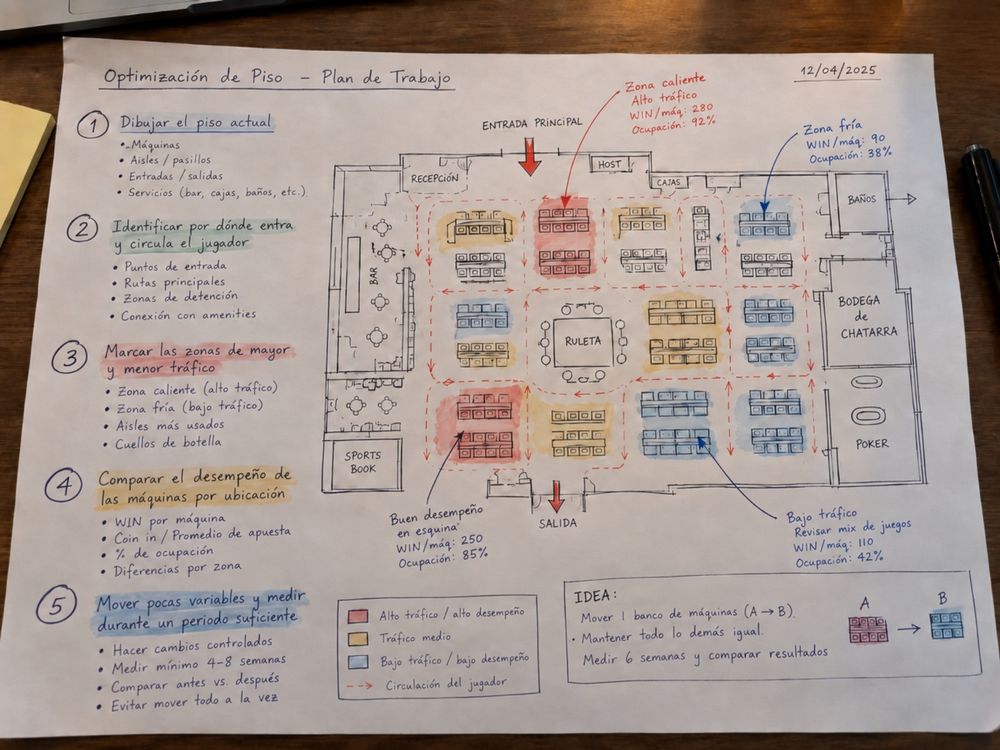 Optimización de Piso – Plan de Trabajo
12/04/2025
1 Dibujar el piso actual
• Máquinas
• Aisles / pasillos
• Entradas / salidas
• Servicios (bar, cajas, baños, etc.)
2 Identificar por dónde entra
y circula el jugador
• Puntos de entrada
• Rutas principales
• Zonas de detención
• Conexión con amenities
3 Marcar las zonas de mayor
y menor tráfico
• Zona caliente (alto tráfico)
• Zona fría (bajo tráfico)
• Aisles más usados
• Cuellos de botella
4 Comparar el desempeño de
las máquinas por ubicación
• WIN por máquina
• Coin in / Promedio de apuesta
• % de ocupación
• Diferencias por zona
5 Mover pocas variables y medir
durante un periodo suficiente
• Hacer cambios controlados
• Medir mínimo 4-8 semanas
• Comparar antes vs. después
• Evitar mover todo a la vez
Zona caliente
Alto tráfico
WIN/máq: 280
Ocupación: 92%
ENTRADA PRINCIPAL
Zona fría
WIN/máq: 90
Ocupación: 38%
RECEPCIÓN
HOST
CAJAS
BAÑOS
BAR
RULETA
BODEGA
de
CHATARRA
POKER
SPORTS
BOOK
SALIDA
Buen desempeño
en esquina
WIN/máq: 250
Ocupación: 85%
Bajo tráfico
Revisar mix de juegos
WIN/máq: 110
Ocupación: 42%
Alto tráfico / alto desempeño
Tráfico medio
Bajo tráfico / bajo desempeño
Circulación del jugador
IDEA:
Mover 1 banco de máquinas (A → B).
• Mantener todo lo demás igual.
Medir 6 semanas y comparar resultados
A → B